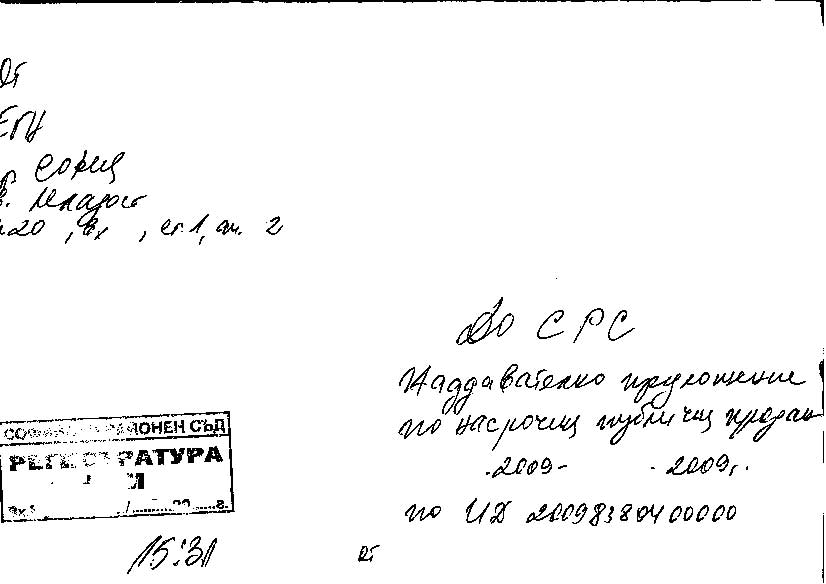 От
ЕГН
гр. София
кв. Младост
20, вх , ет. 1, ап. 2
До СРС
Наддавателно предложение
по насрочена публична продан
2009 - 2009г.
по ИД 20098380400000
СОФИЙСКИ РАЙОНЕН СЪД
РЕГИСТРАТУРА
Вх. / г.
15:31
от